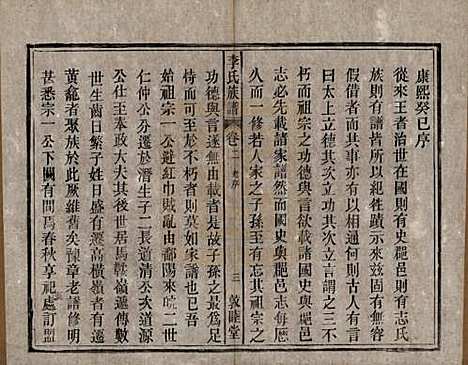 康熙癸巳序
從來王者治世在國則有史在郡邑則有志氏
族則有譜皆所以紀生
假借者亦以相通何則古人有言
曰太上立德其次立功其次立言謂之三不
朽而祖宗之功德與言欲載諸國史與郡邑
志必先載諸家譜然而國史與郡邑志每歷
久而一修若人家之子孫至有忘其祖宗之
李氏族譜 卷一 老序 三 敦睦堂
功德與言遂無由載者是故子孫之最為足
恃而可至於不朽者莫此譜之修也已吾
始祖宗一公避紅巾賊亂由鄱陽來皖二世
仁仲公幼逝於潛生子二長道清公次道源
公仕奉政大夫其次世居馬鞍嶺遞傳十
世生齒日繁子姓日盛有遷高橫嶺者有遷
黃龕者聚族於此厥維舊矣豫章老譜修明
甚悉宗一公下闕有間焉春秋享祀處訂盟